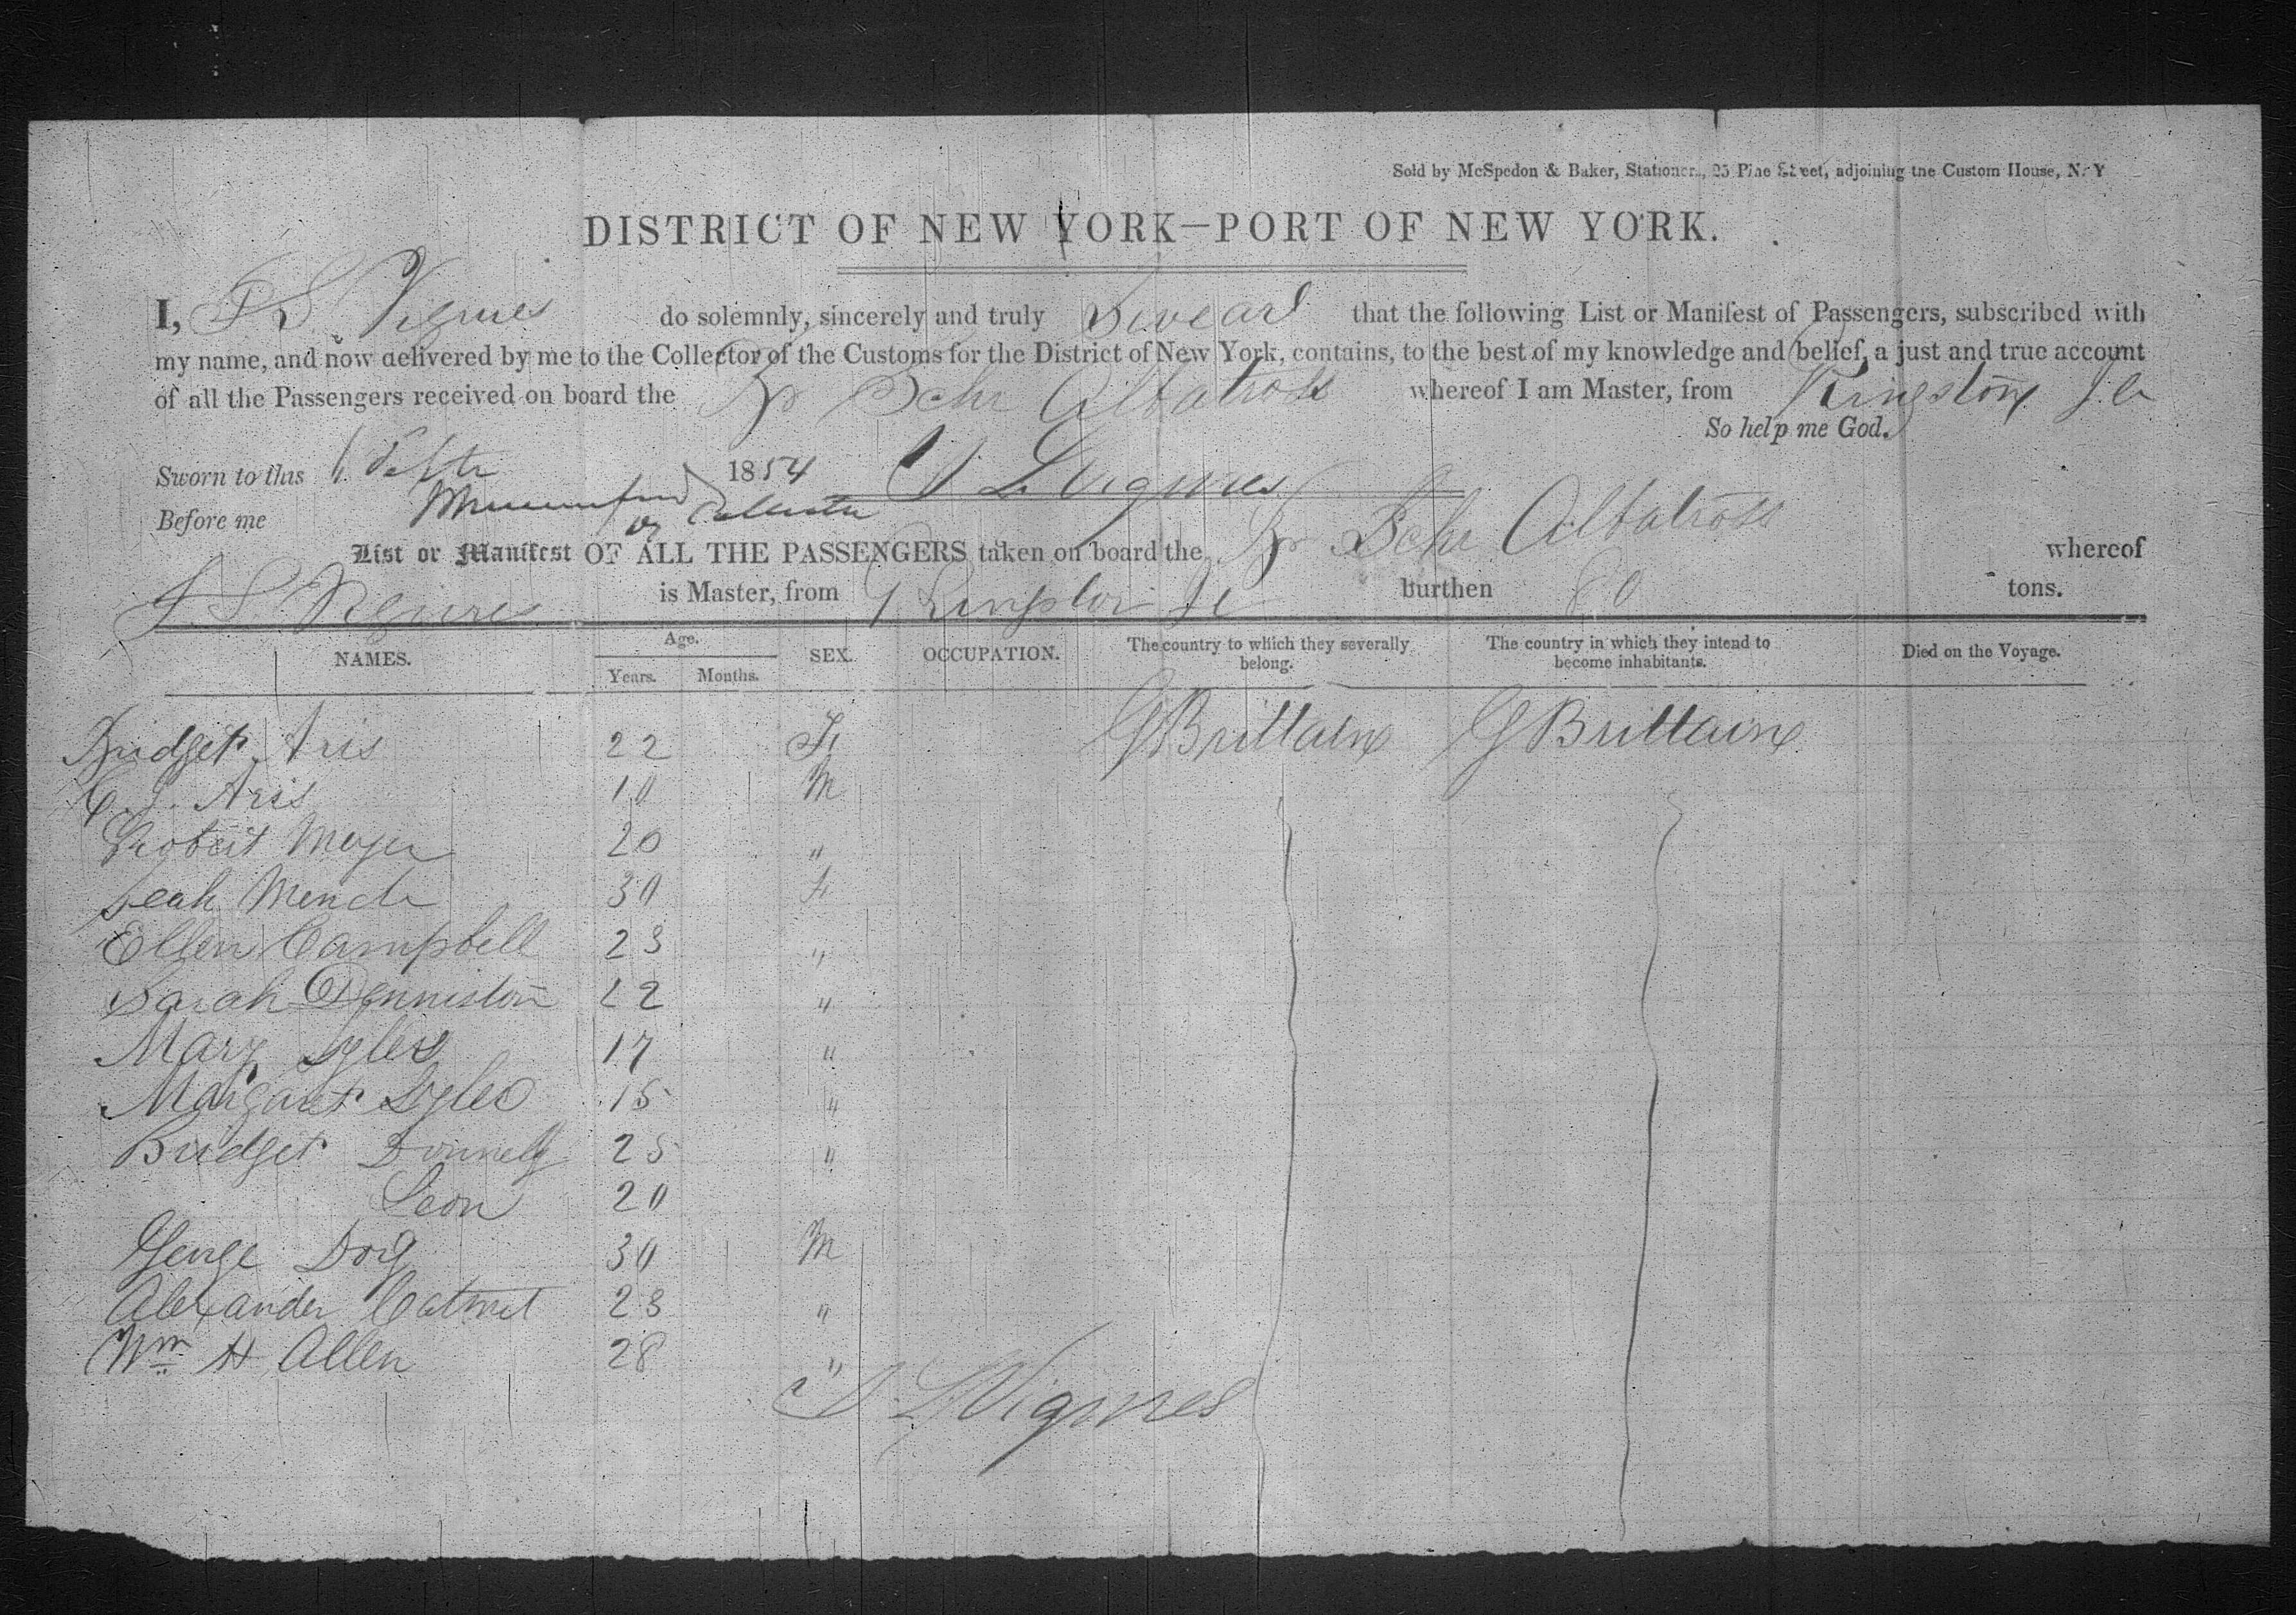 Sold by McSpedon & Baker, Stationers, 25 Pine Street, adjoining the Custom House, N. Y
DISTRICT OF NEW YORK—PORT OF NEW YORK.
I, T S Vignes do solemnly, sincerely and truly Swear that the following List or Manifest of Passengers, subscribed with
my name, and now delivered by me to the Collector of the Customs for the District of New York, contains, to the best of my knowledge and belief, a just and true account
of all the Passengers received on board the Br Schr Albatross whereof I am Master, from Kingston Ja
So help me God.
Sworn to this 1854 Vignes
Before me
List or Manifest OF ALL THE PASSENGERS taken on board the Br Schr Albatross whereof
is Master, from Kingston Ja burthen 80 tons.
NAMES. Age. SEX. OCCUPATION. The country to which they severally belong. The country in which they intend to become inhabitants. Died on the Voyage.
Years. Months.
Bridget Aris 22 F G Brittain G Brittain
C. J. Aris 10 M
Robert Meyer 20 "
Leah 30 F
Ellen Campbell 23 "
Sarah Denniston 22 "
Mary Lyles 17 "
Margaret Lyles 15 "
Bridget Donnelly 25 "
Leon 20
George 30 M
Alexander 23 "
Wm H Allen 28 "
Vignes